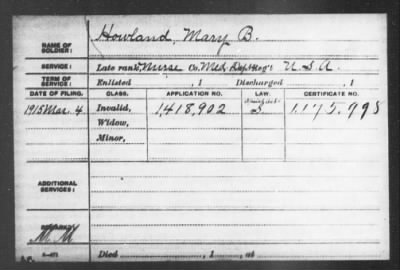 Howland, Mary B.
NAME OF SOLDIER:
SERVICE: Late rank Nurse Co. Med. Dep't Reg't U.S.A.
TERM OF SERVICE: Enlisted , 1 Discharged , 1
DATE OF FILING. CLASS. APPLICATION NO. LAW. CERTIFICATE NO.
1915 Mar. 4 Invalid, 1,418,902 S. 1,175,998
Widow,
Minor,
ADDITIONAL SERVICES:
REMARKS:
M M
Died , 1 , at